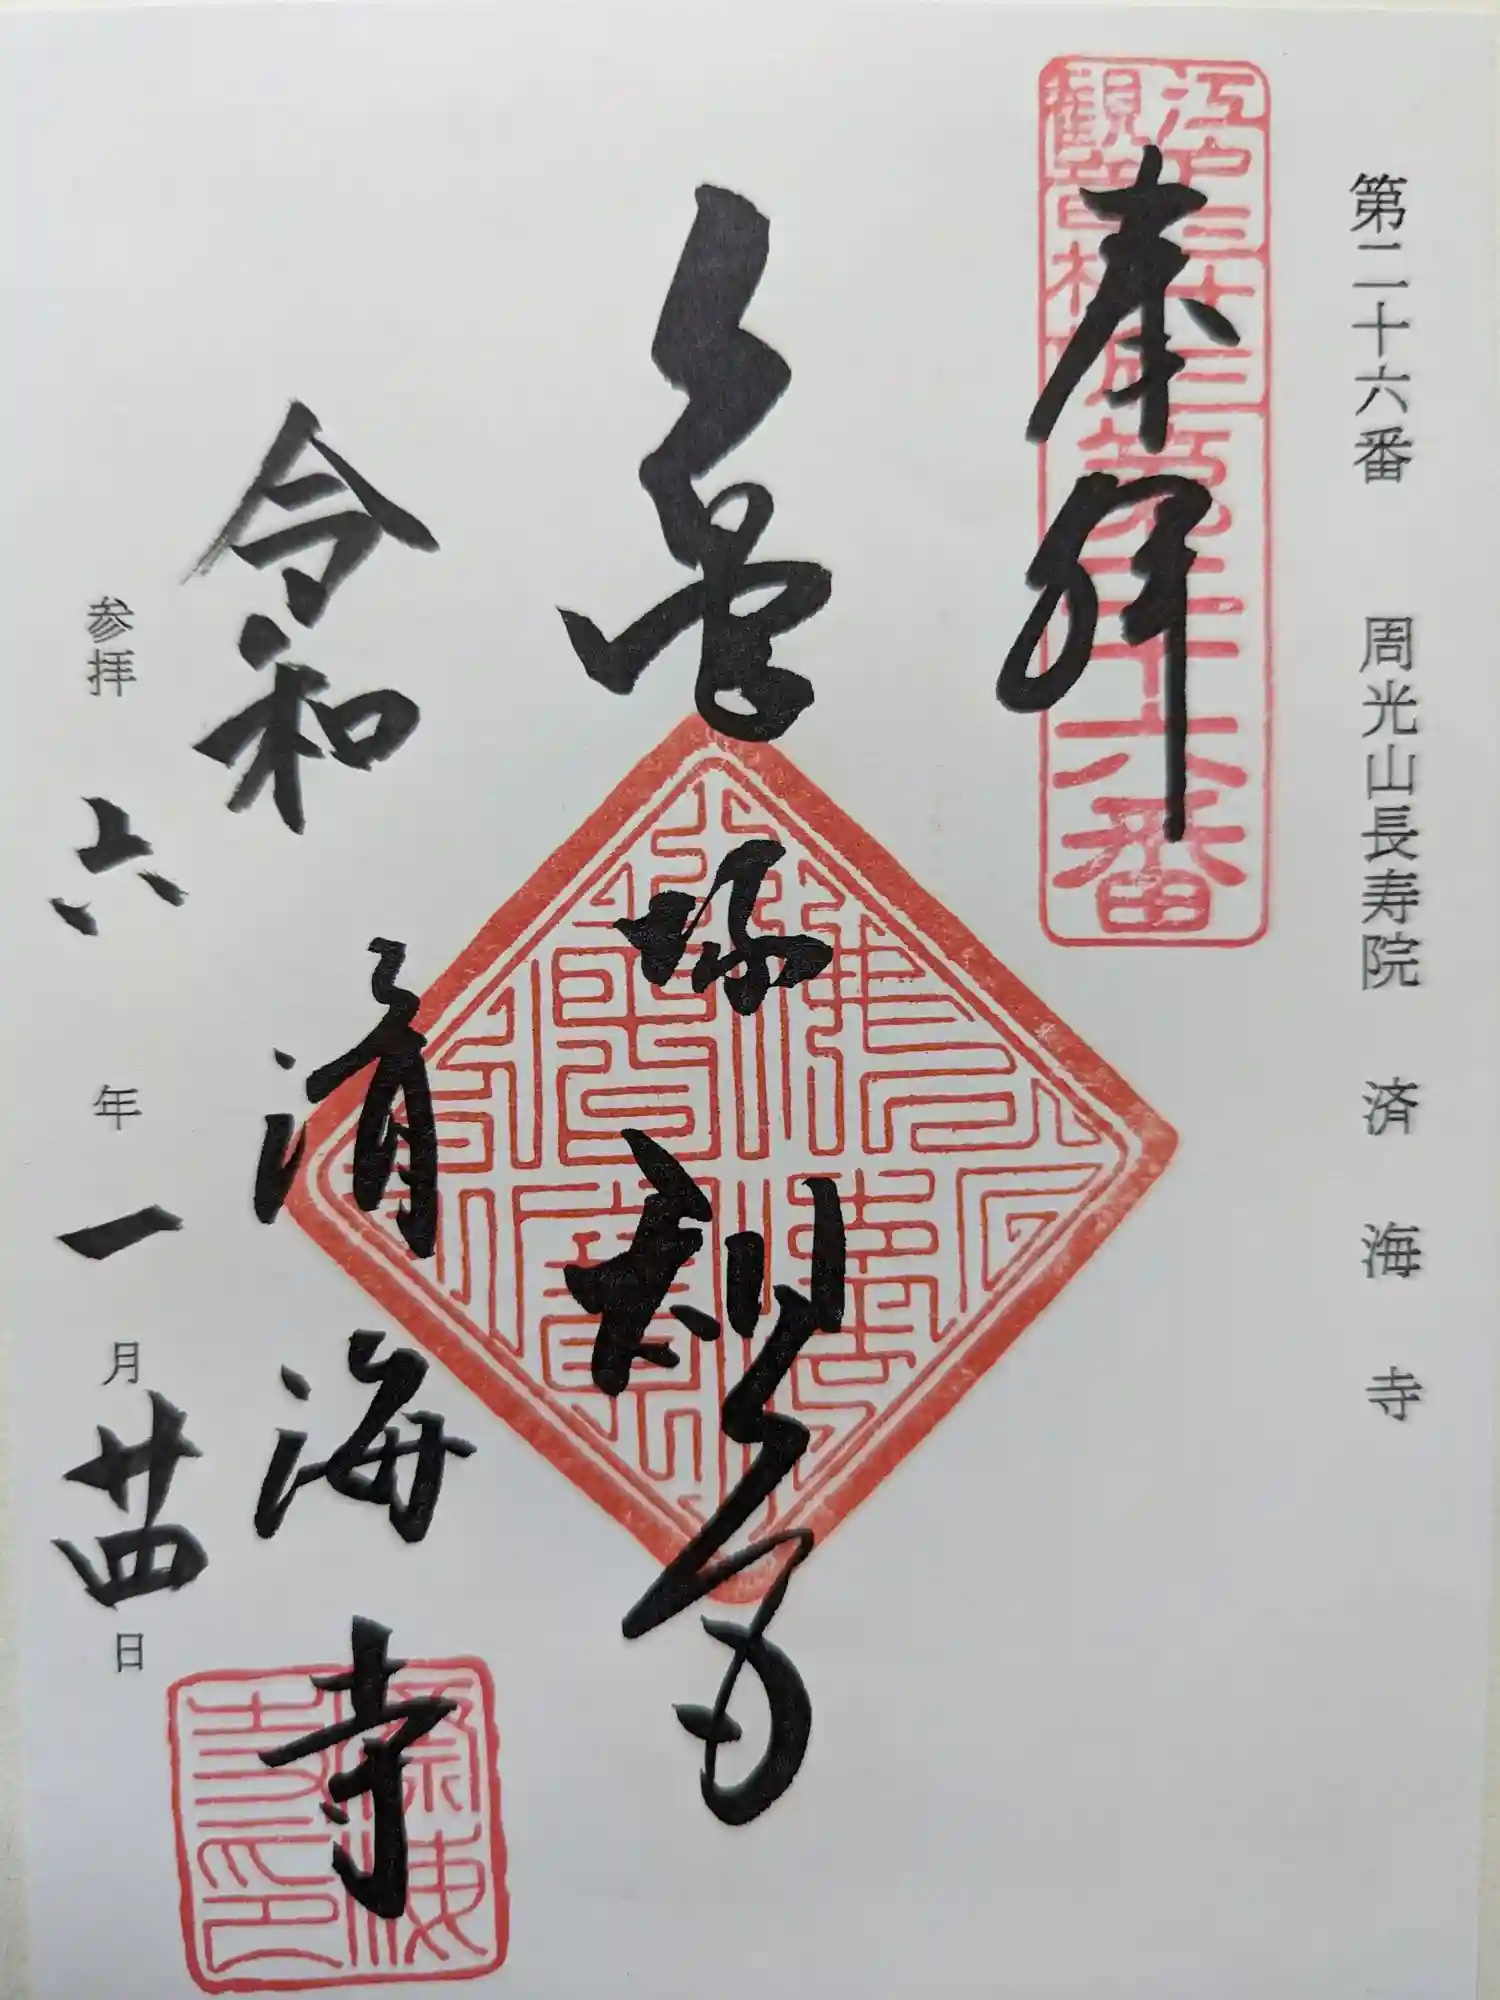 第二十六番 周光山長寿院 済海寺
江戸三十三
観音札所
第二十六番
奉拝
亀塚
済海寺
令和
参拝 六年一月廿四日
済海
寺印